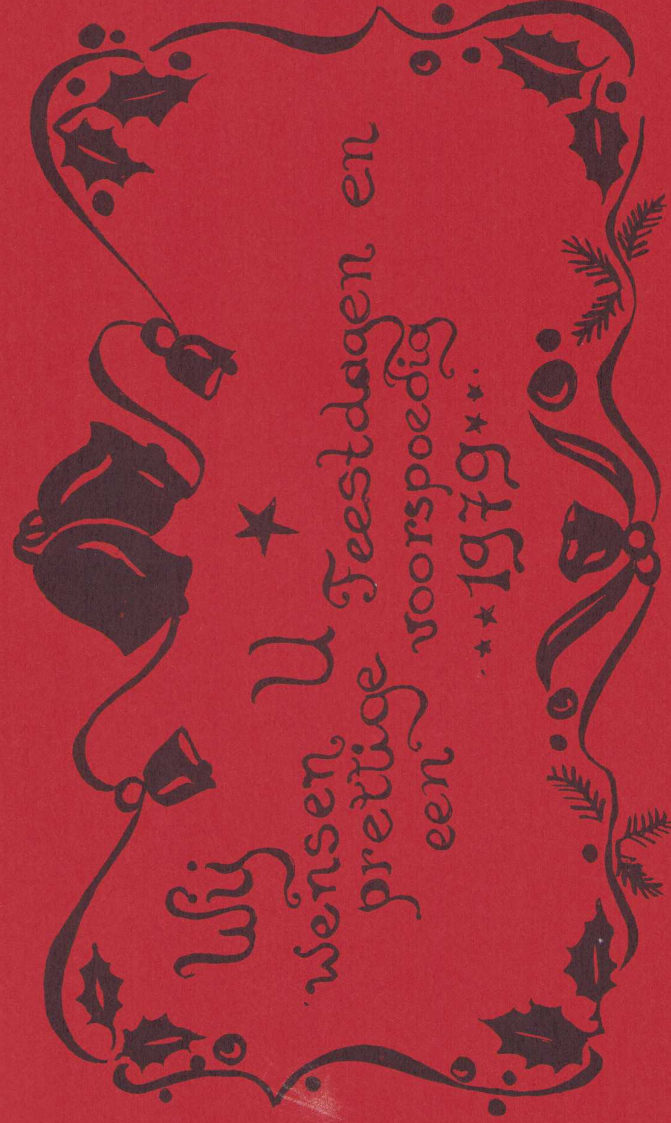 Wij
wensen U
prettige Feestdagen en
een voorspoedig
1979